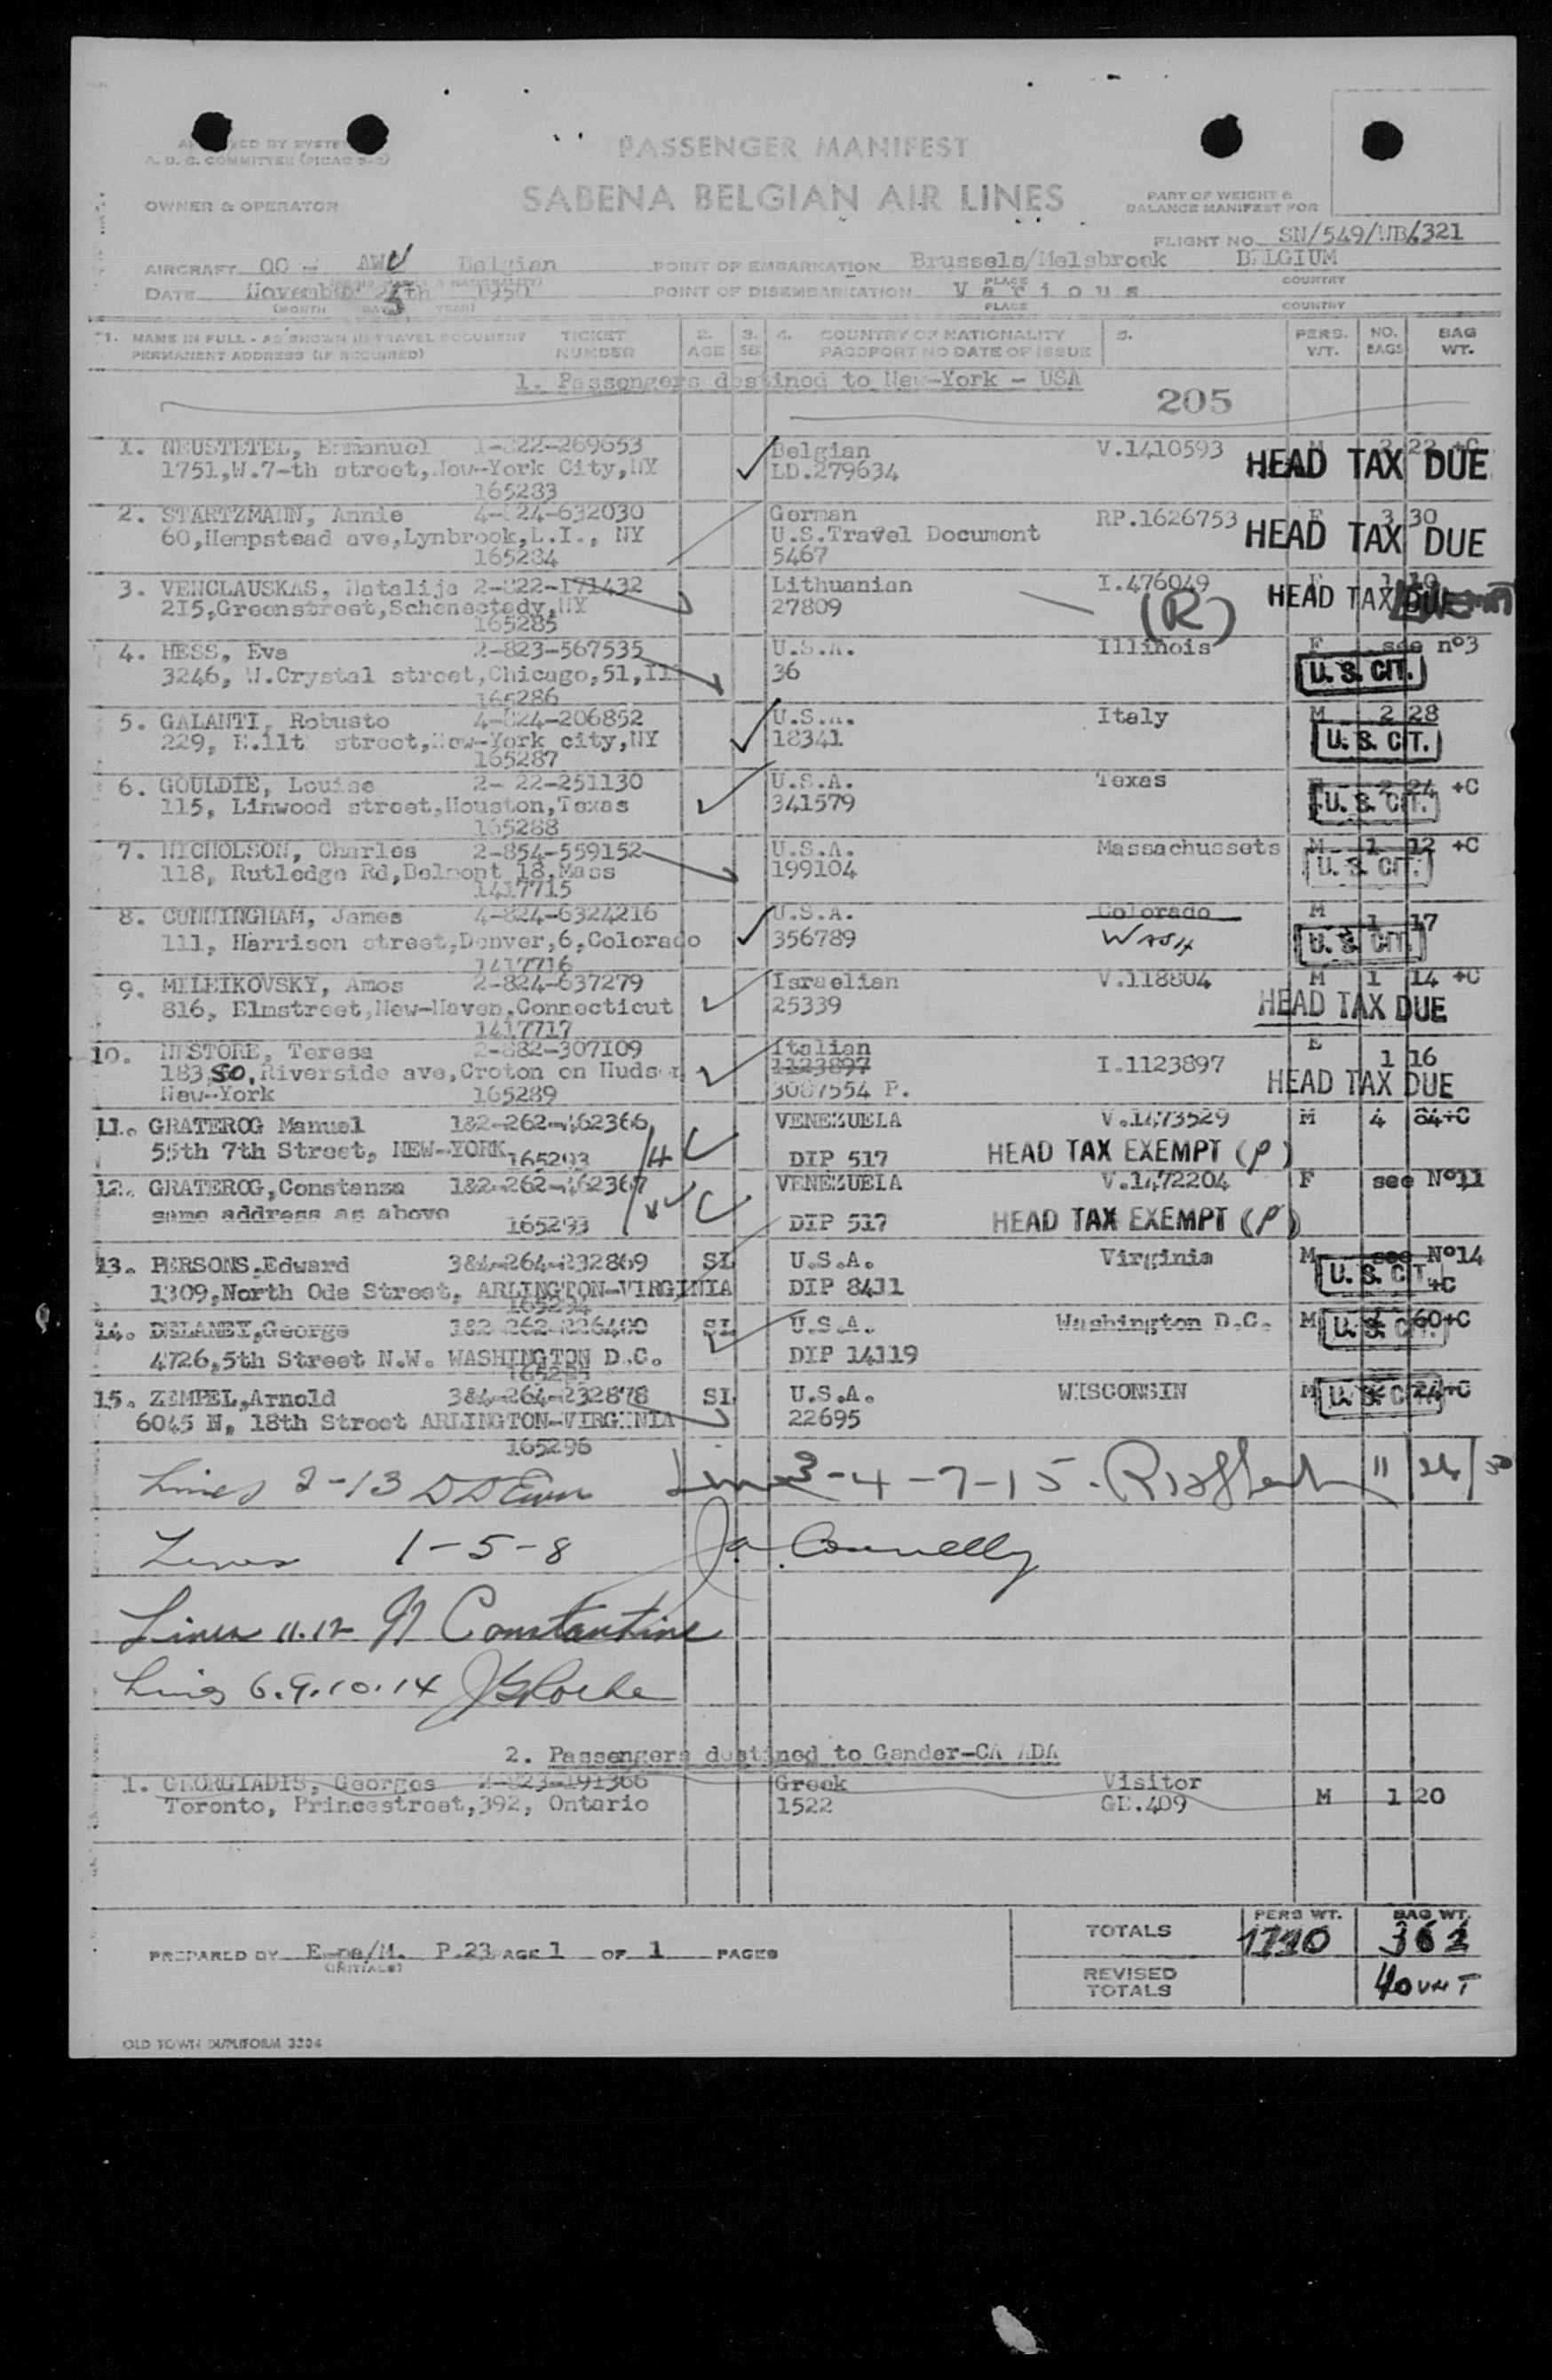 PASSENGER MANIFEST
A. D. C. COMMITTEE (PICAO
OWNER & OPERATOR
SABENA BELGIAN AIR LINES
PART OF WEIGHT &
BALANCE MANIFEST FOR
FLIGHT NO. SN/549/WB/321
AIRCRAFT OO - AWV Belgian POINT OF EMBARKATION Brussels/Melsbroek BELGIUM
DATE November 1950 POINT OF DISEMBARKATION Various
PLACE COUNTRY
(MONTH YEAR) PLACE COUNTRY
1. NAME IN FULL - AS SHOWN IN TRAVEL DOCUMENT TICKET 2. 3. 4. COUNTRY OF NATIONALITY 5. PERS. NO. BAG
PERMANENT ADDRESS (IF REQUIRED) NUMBER AGE SEX PASSPORT NO DATE OF ISSUE WT. BAGS WT.
1. Passengers destined to New-York - USA
205
1. NEUSTETEL, Emmanuel 1-822-269653 Belgian V.1410593 M 2 22 +C
1751,W.7-th street,New-York City,NY LD.279634 HEAD TAX DUE
165283
2. STARTZMANN, Annie 4-824-632030 German RP.1626753 F 3 30
60,Hempstead ave,Lynbrook,L.I., NY U.S.Travel Document HEAD TAX DUE
165284 5467
3. VENCLAUSKAS, Natalija 2-822-171432 Lithuanian I.476049 1 19
215,Greenstreet,Schenectady,NY 27809 (R) HEAD TAX DUE
165285
4. HESS, Eva 2-823-567535 U.S.A. Illinois F see n°3
3246, W.Crystal street,Chicago,51,Ill 36 U. S. CIT.
165286
5. GALANTI, Robusto 4-824-206852 U.S.A. Italy M 2 28
229, E.11t street,New-York city,NY 18341 U. S. CIT.
165287
6. GOULDIE, Louise 2- 22-251130 U.S.A. Texas F 2 24 +C
115, Linwood street,Houston,Texas 341579 U. S. CIT.
165288
7. NICHOLSON, Charles 2-854-559152 U.S.A. Massachussets M 1 12 +C
118, Rutledge Rd,Belmont 18,Mass 199104 U. S. CIT.
1417715
8. CUNNINGHAM, James 4-824-6324216 U.S.A. Colorado M 1 17
111, Harrison street,Denver,6,Colorado 356789 WASH U. S. CIT.
1417716
9. MILEIKOVSKY, Amos 2-824-637279 Israelian V.118804 M 1 14 +C
816, Elmstreet,New-Haven,Connecticut 25339 HEAD TAX DUE
1417717
10. NESTORE, Teresa 2-882-307109 Italian F
183 SO, Riverside ave,Croton on Hudson 1123897 I.1123897 1 16
New-York 165289 3087554 P. HEAD TAX DUE
11. GRATEROG Manuel 1&2-262-462366 VENEZUELA V.1473529 M 4 84+C
55th 7th Street, NEW-YORK 165293 DIP 517 HEAD TAX EXEMPT (P)
12. GRATEROG,Constanza 1&2-262-462367 VENEZUELA V.1472204 F see N°11
same address as above 165293 DIP 517 HEAD TAX EXEMPT (P)
13. PERSONS,Edward 3&4-264-232869 SL U.S.A. Virginia M see N°14
1309,North Ode Street, ARLINGTON-VIRGINIA DIP 8411 U. S. CIT. +C
165294
14. DELANEY,George 1&2-262-226480 SL U.S.A. Washington D.C. M 60+C
4726,5th Street N.W. WASHINGTON D.C. DIP 14119 U. S. CIT.
165295
15. ZEMPEL,Arnold 3&4-264-232878 SL U.S.A. WISCONSIN M 2 24+C
6045 N, 18th Street ARLINGTON-VIRGINIA 22695 U. S. CIT.
165296
Lines 2-13 Line 3-4-7-15.
Lines 1-5-8 Connelly
Lines 11.12 Constantine
Lines 6.9.10.14
2. Passengers destined to Gander-CA ADA
1. GEORGIADIS, Georges 2-823-191366 Greek Visitor M 1 20
Toronto, Princestreet,392, Ontario 1522 GE.409
TOTALS PERS WT. BAG WT. 362
PREPARED BY P.23 PAGE 1 OF 1 PAGES
(INITIALS)
REVISED
TOTALS
OLD TOWN DUPLIFORM 3304